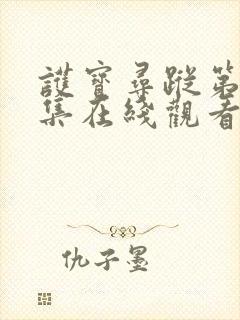 護寶尋蹤第
集在綫觀看
仇子墨